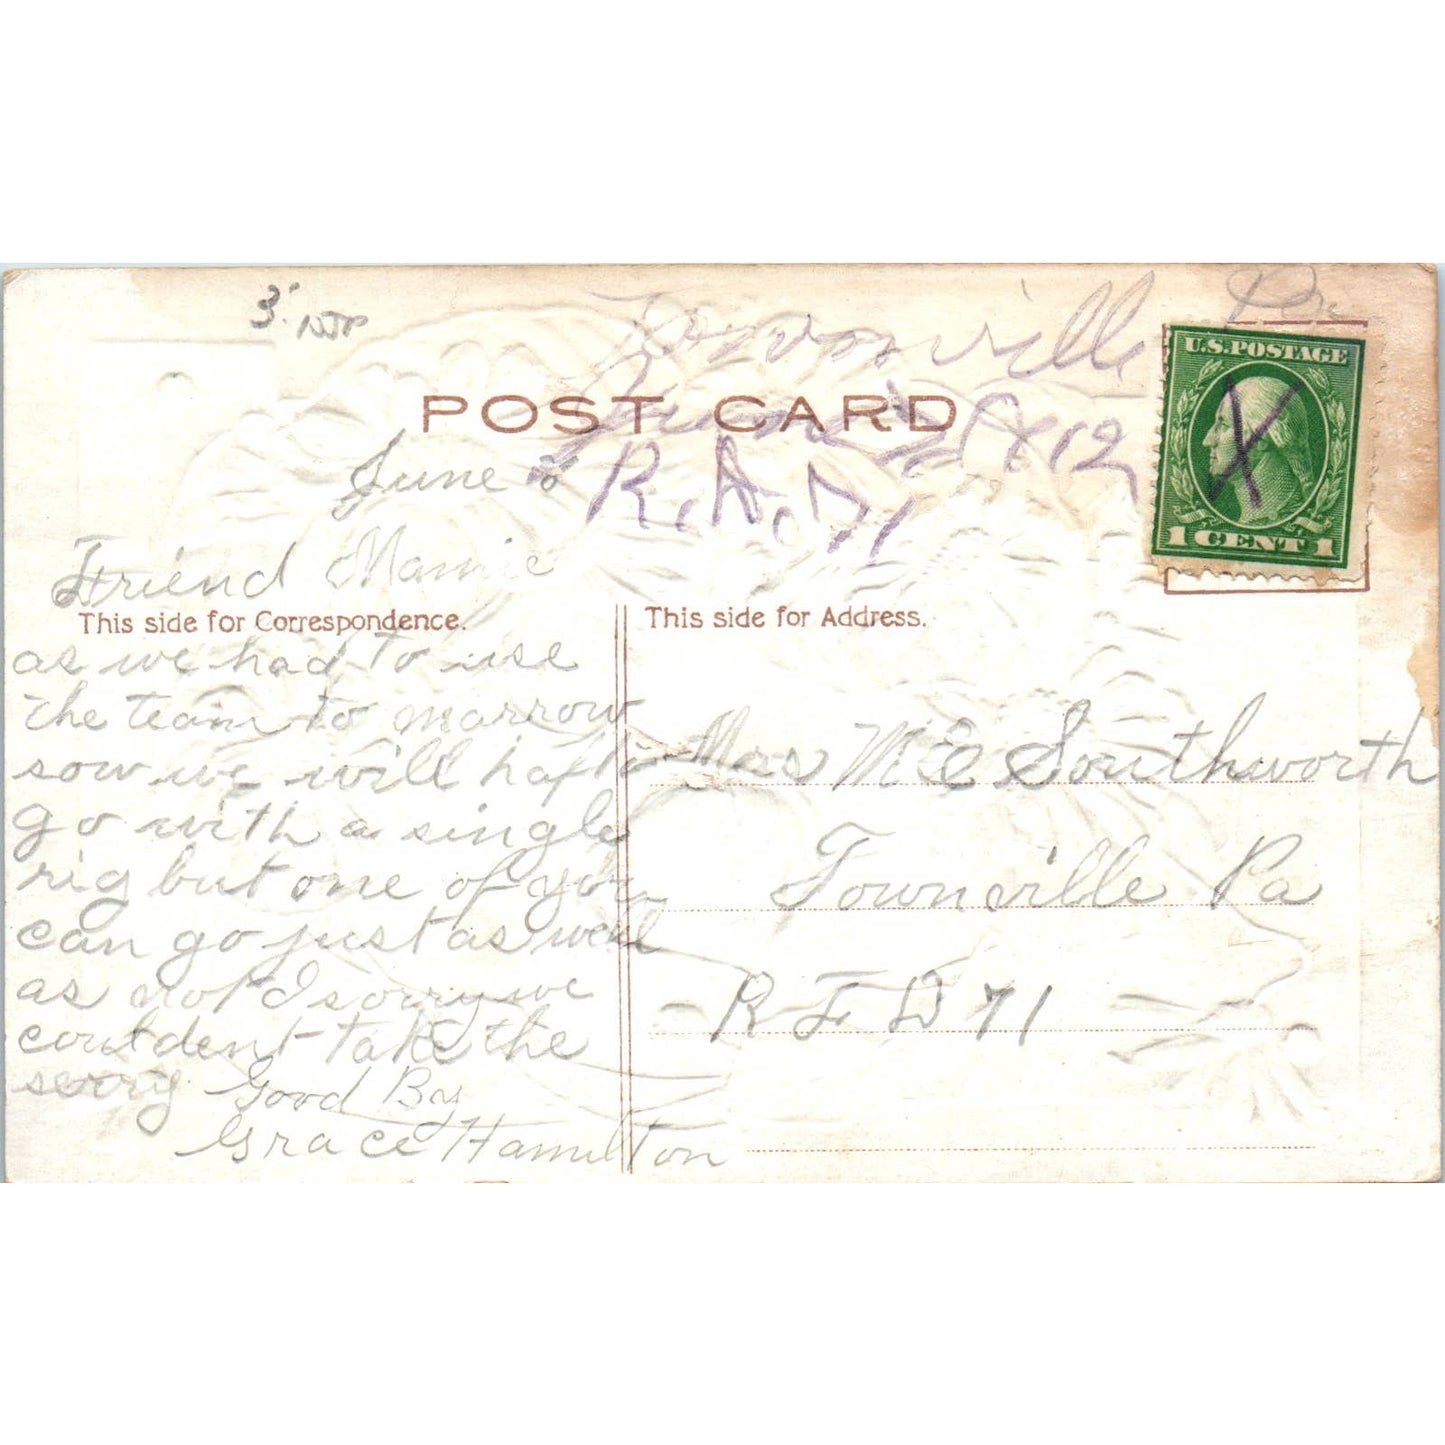 3.
Townville Pa
POST CARD
June 12
R.A.D.
U.S. POSTAGE
1 CENT 1
June
Friend Mamie
This side for Correspondence.
as we had to use
the team to marrow
sow we will hafto
go with a single
rig but one of you
can go just as well
as not I sorry we
couldent take the
serrig Good By
Grace Hamilton
This side for Address.
Mrs M E Southworth
Townville Pa
R F D 71